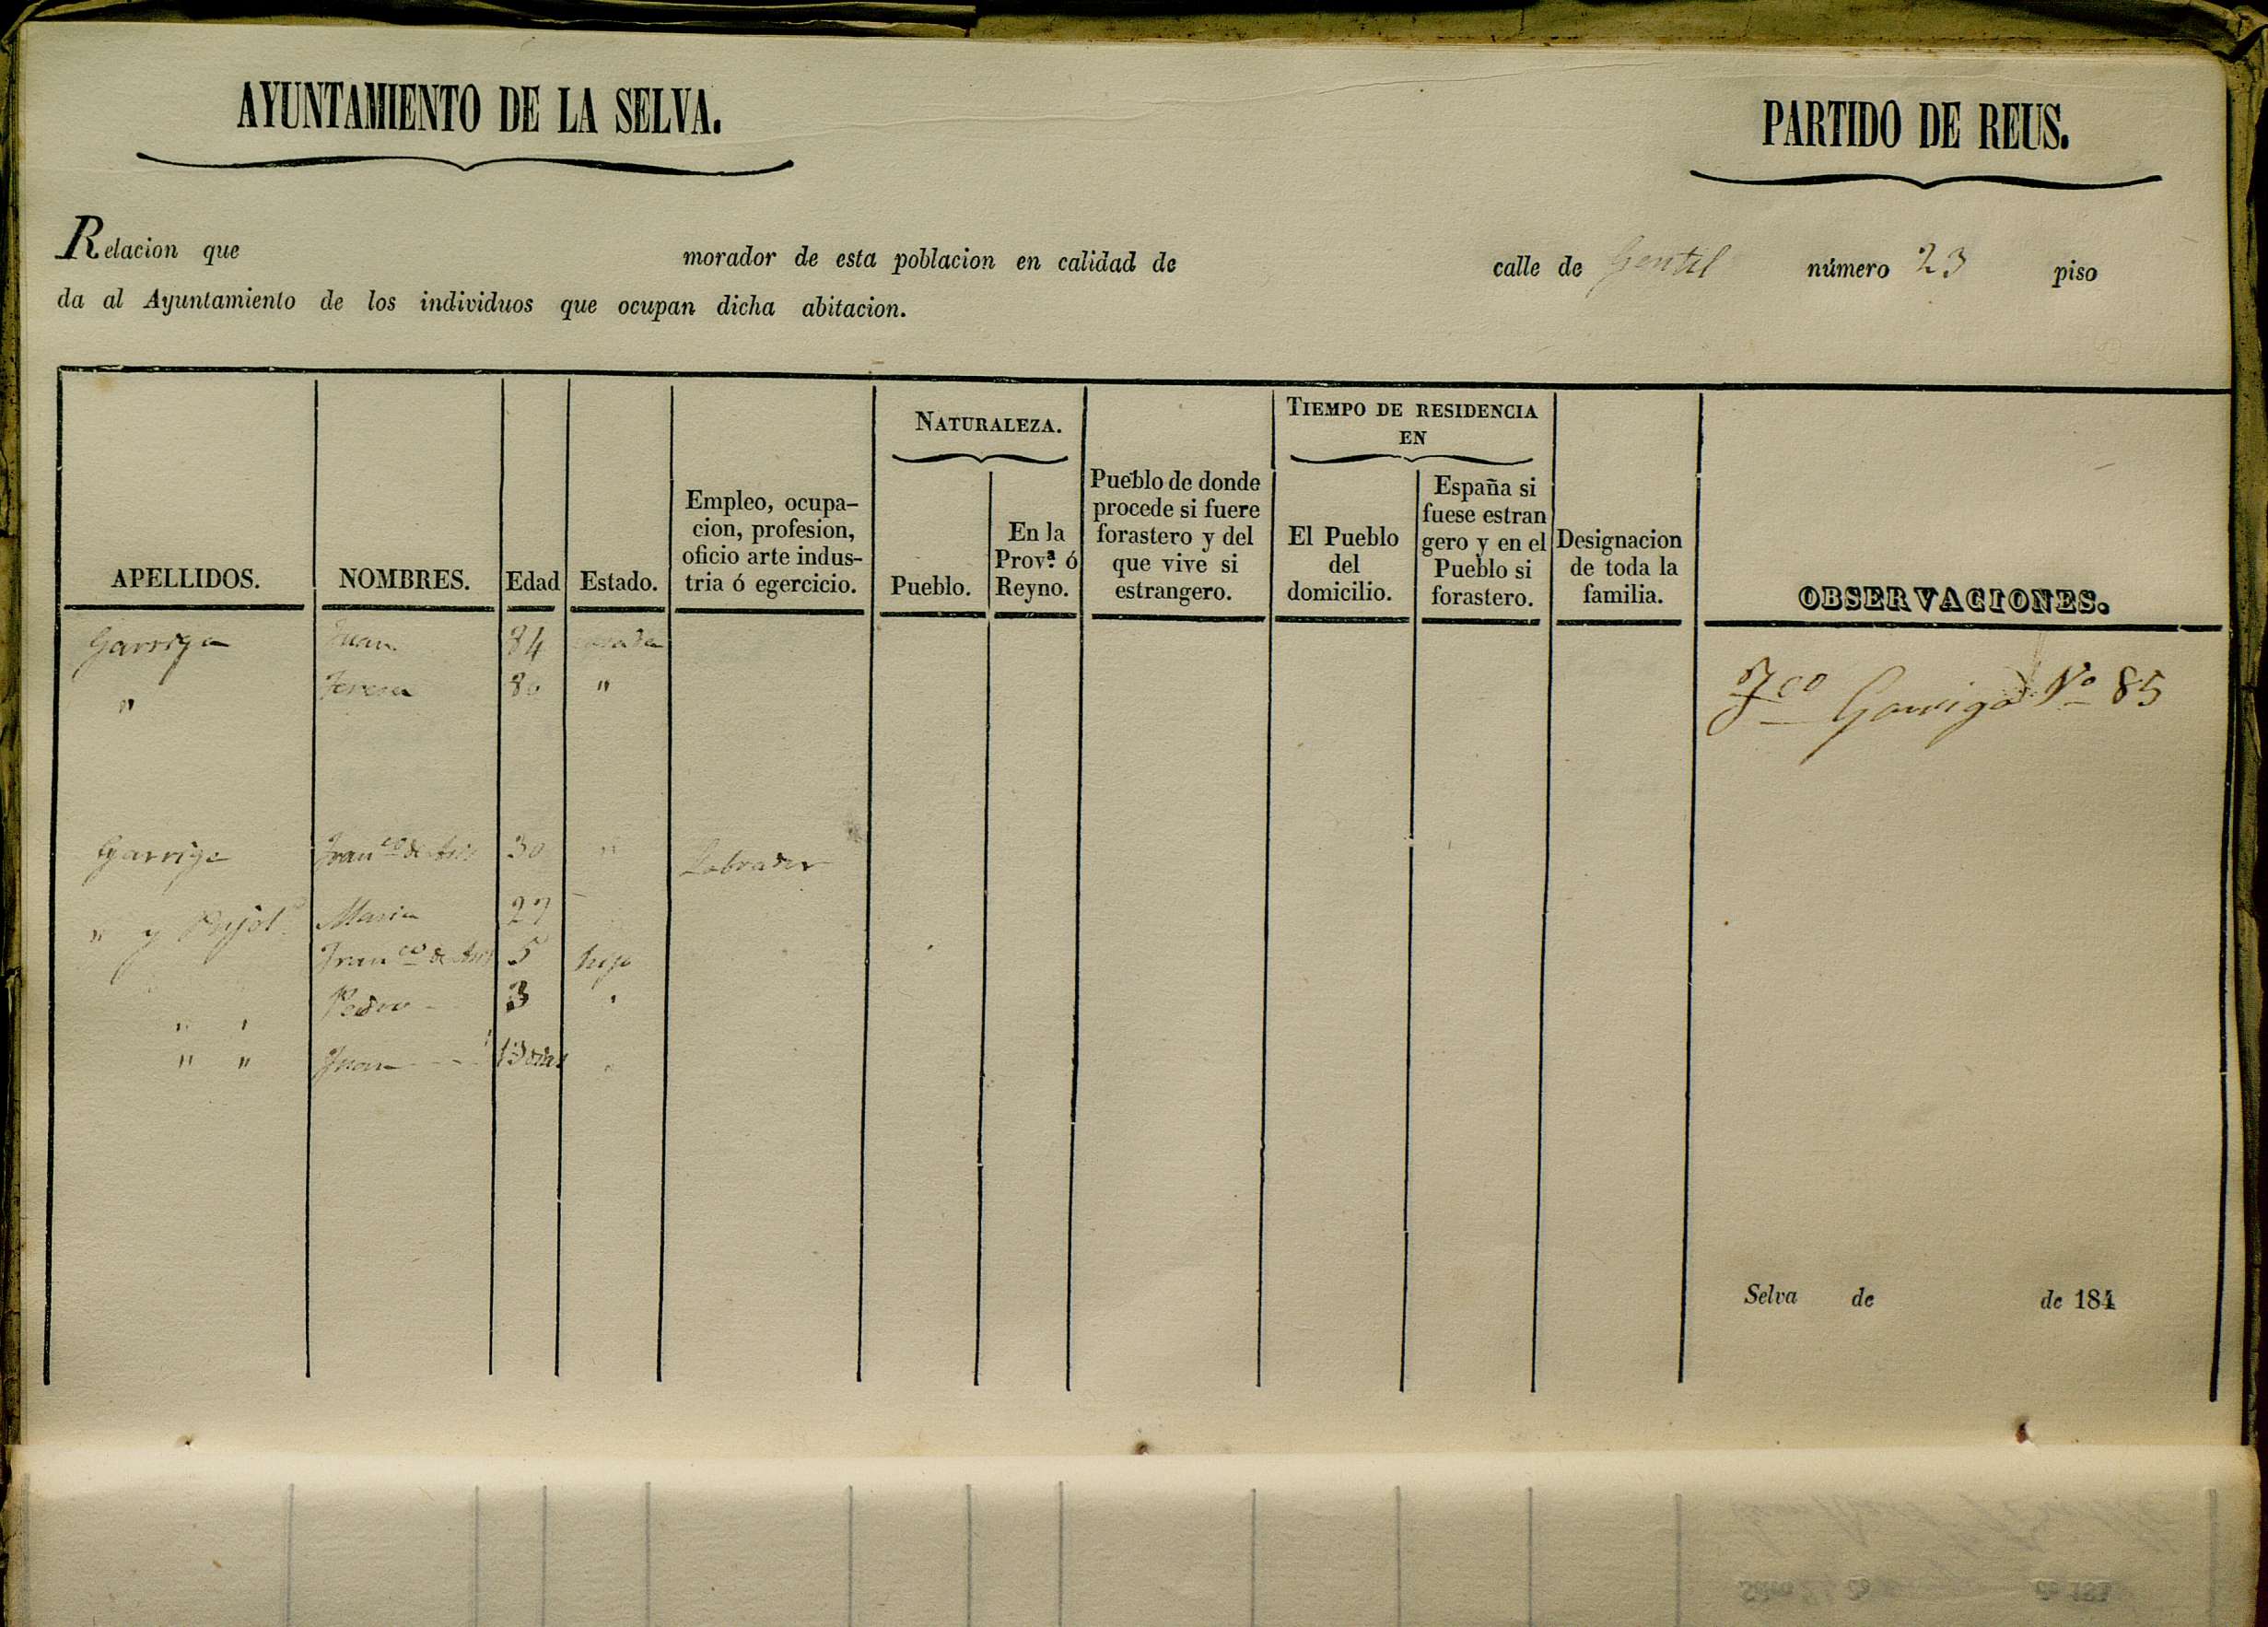 AYUNTAMIENTO DE LA SELVA.
PARTIDO DE REUS.
Relacion que morador de esta poblacion en calidad de calle de Gentil número 23 piso
da al Ayuntamiento de los individuos que ocupan dicha abitacion.
APELLIDOS. NOMBRES. Edad Estado. Empleo, ocupa-
cion, profesion,
oficio arte indus-
tria ó egercicio.
NATURALEZA.
Pueblo. En la
Prov.ª ó
Reyno.
Pueblo de donde
procede si fuere
forastero y del
que vive si
estrangero.
TIEMPO DE RESIDENCIA
EN
El Pueblo
del
domicilio.
España si
fuese estran
gero y en el
Pueblo si
forastero.
Designacion
de toda la
familia.
OBSERVACIONES.
Garriga Juan 84
" Teresa 80 "
Fco Garriga Nº 85
Garriga Franco de Asis 30 " Labrador
" y Pujol Maria 27
Franco de Asis 5 hijo
" " Pedro 3 "
" " Juan 13 dias "
Selva de de 184